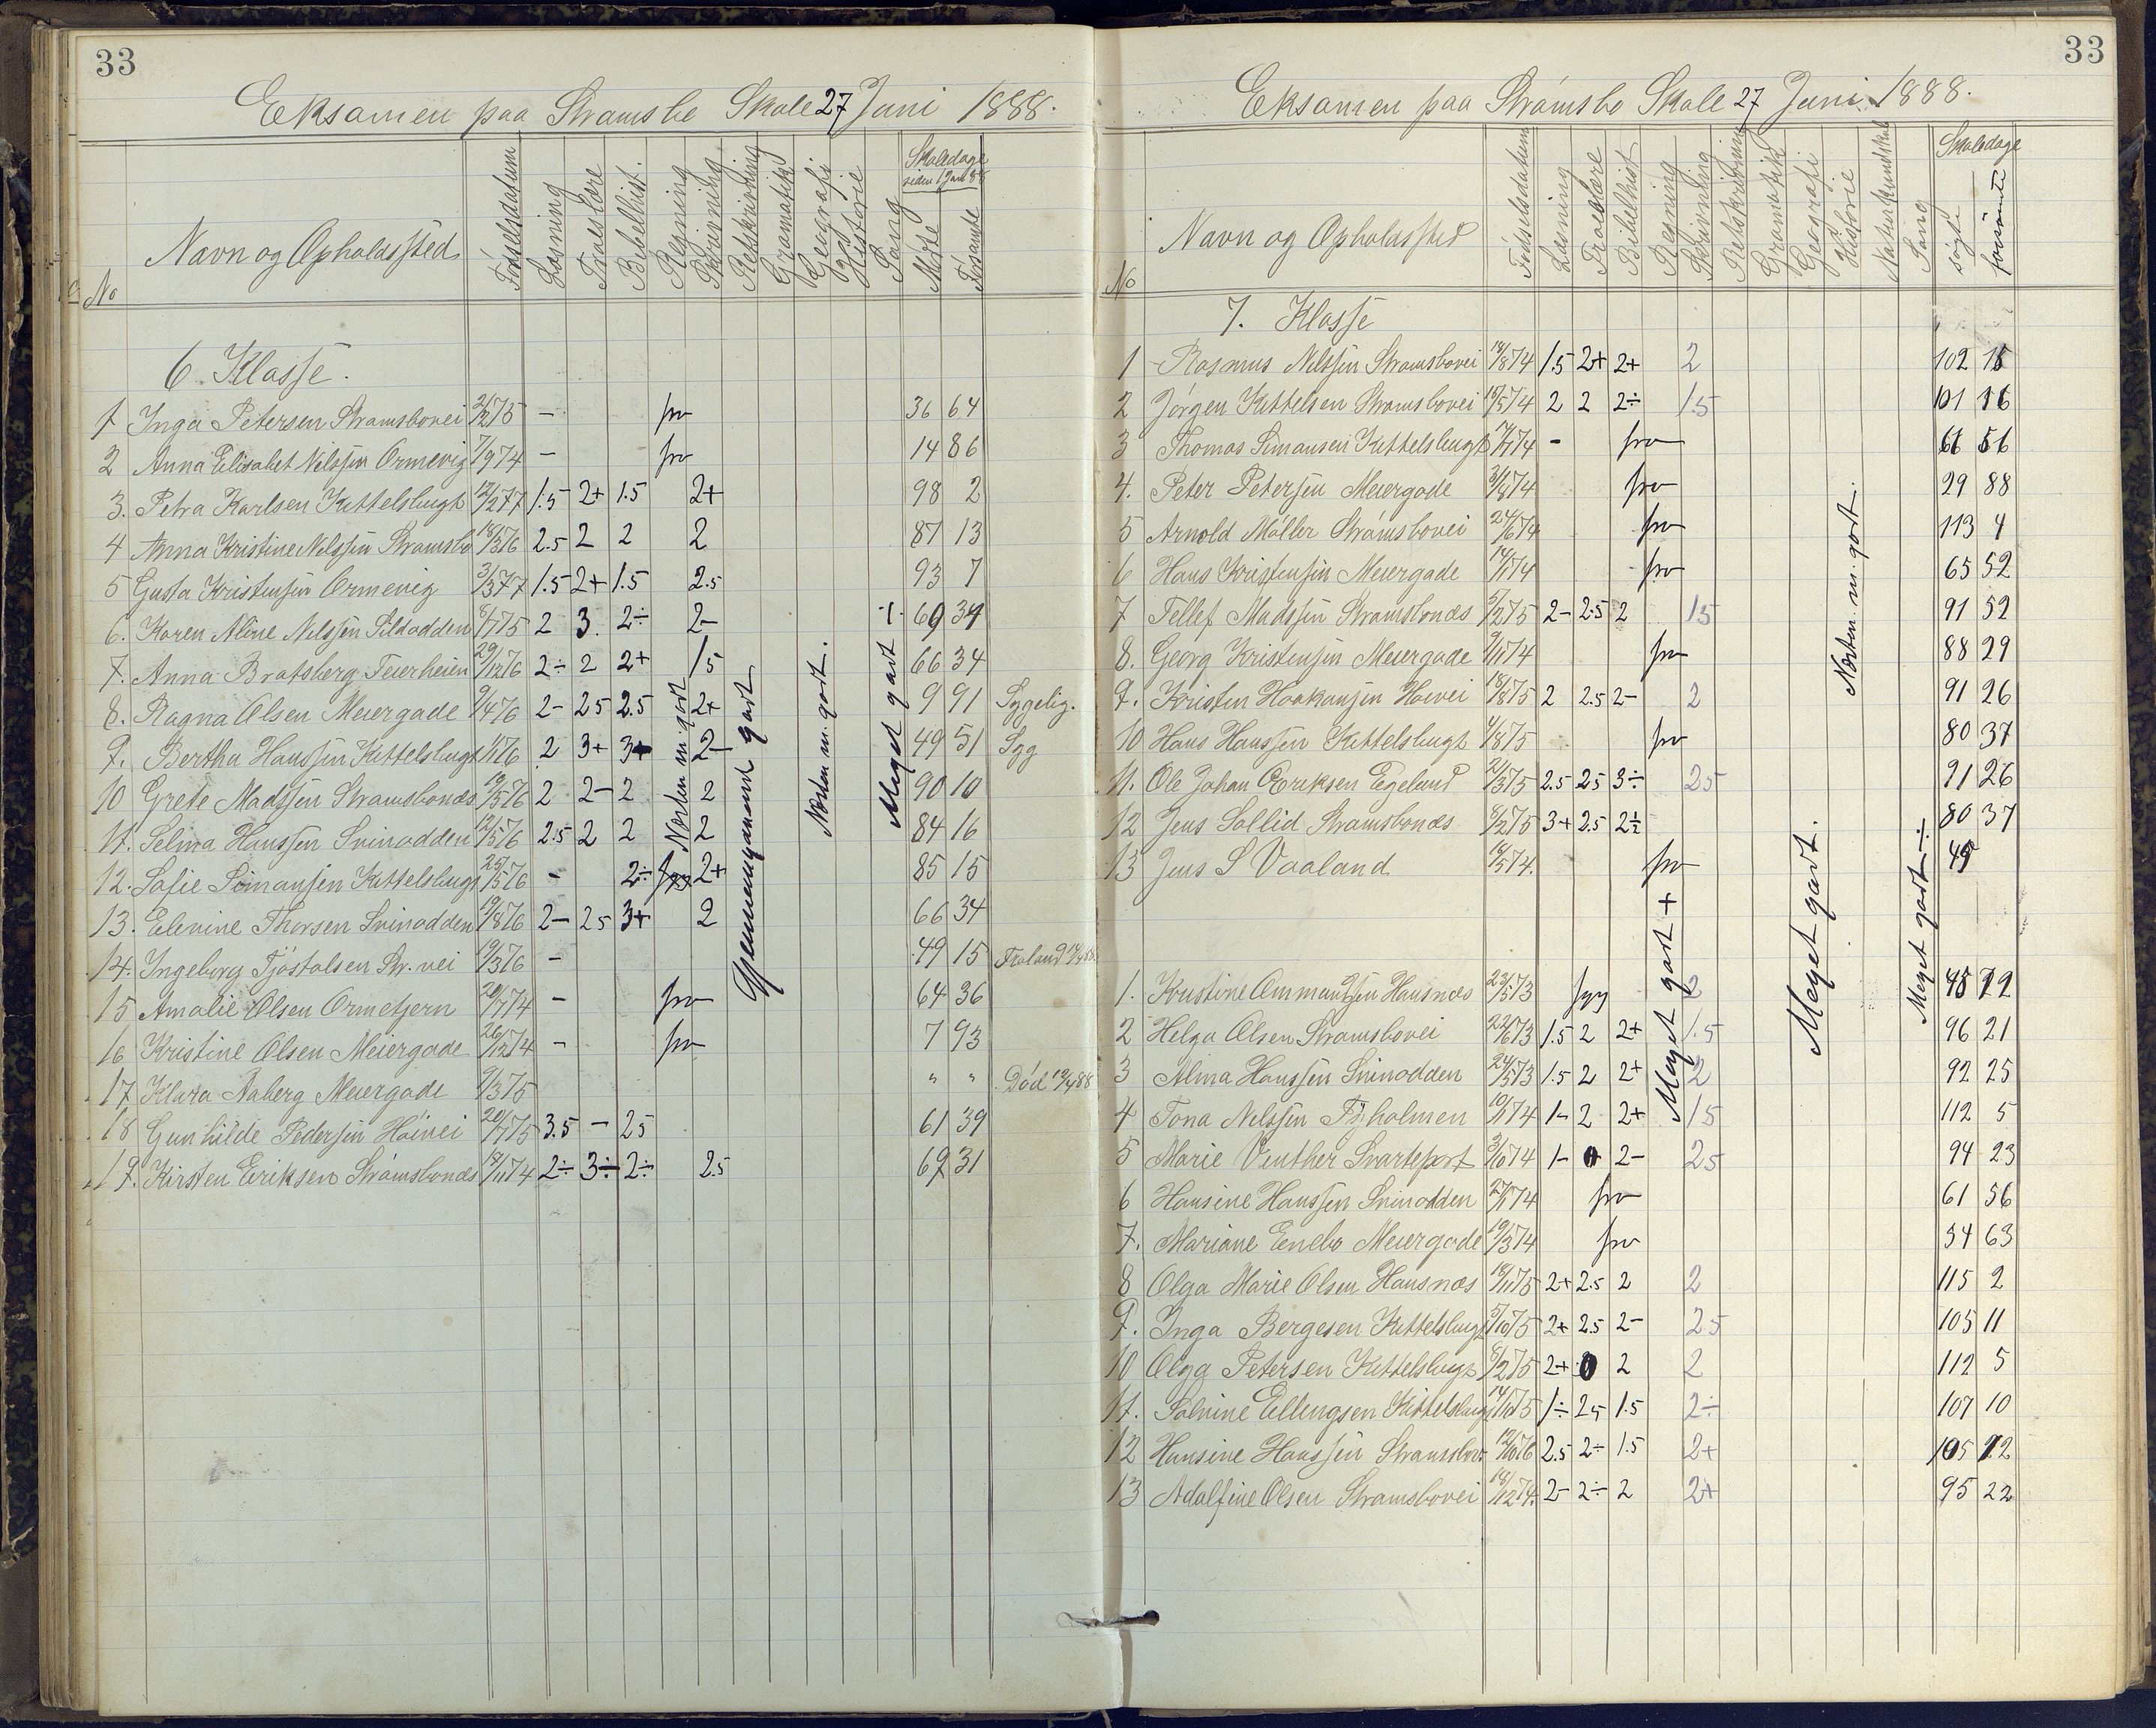 33
Eksamen paa Strømsbo Skole 27 Juni 1888.
No Navn og Opholdssted Fødselsdatum Læsning Troeslære Bibelhist. Regning Skrivning Retskrivning Gramatik Geografi og Historie Sang Skoledage siden 1 Jan 88 Møtte Forsømte
6 Klasse.
1 Inga Petersen Strømsbovei 2/275 - frv 36 64
2 Anna Elisabet Nilssen Ormevig 7/974 - frv 14 86
3. Petra Karlsen Kittelsbugt 12/277 1.5 2+ 1.5 2+ 98 2
4 Anna Kristine Nilssen Strømsbo 18/376 2.5 2 2 2 87 13
5 Gusta Kristensen Ormevig 3/377 1.5 2+ 1.5 2.5 93 7
6. Karen Aline Nilssen Sildodden 8/775 2 3. 2÷ 2- -1- 69 34
7. Anna Bratsberg Teierheien 29/1276 2÷ 2 2+ 1.5 66 34
8. Ragna Olsen Meiergade 9/476 2- 25 2.5 2+ 9 91 Sygelig.
9. Bertha Hanssen Kittelsbugt 1/176 2 3+ 3+ 2- 49 51 Syg
10 Grete Madssen Strømsbonæs 19/576 2 2- 2 2 90 10
11. Selma Hanssen Svinodden 12/576 2.5 2 2 2 84 16
12. Sofie Simonsen Kittelsbugt 25/576 - 2÷ 2+ 85 15
13. Elevine Thorsen Svinodden 19/876 2- 25 3+ 2 66 34
14. Ingeborg Tjøstolsen Str. vei 19/376 - 49 15 Froland
15 Amalie Olsen Ormetjern 20/774 - frv 64 36
16 Kristine Olsen Meiergade 26/1274 - frv 7 93
17 Klara Aaberg Meiergade 9/375 " " Død 12/488
18 Gunhilde Pedersen Høivei 20/775 3.5 - 25 61 39
19. Kirsten Eriksen Strømsbonæs 18/1174 2÷ 3÷ 2÷ 2.5 69 31
Næsten m. godt
Gjennemgaaende godt
Næsten m. godt.
Meget godt
33
Eksamen paa Strømsbo Skole 27 Juni 1888.
No Navn og Opholdssted Fødselsdatum Læsning Troeslære Bibelhist Regning Skrivning Retskrivning Gramatik Geografi Historie Naturkundskab Sang Skoledage søgte forsømte
7. Klasse
1 Rasmus Nilssen Strømsbovei 18/874 1.5 2+ 2+ 2 102 15
2 Jørgen Kittelsen Strømsbovei 18/574 2 2 2÷ 1.5 101 16
3 Thomas Simonsen Kittelsbugt 17/774 - frv 61 56
4. Peter Petersen Meiergade 31/874 frv 29 88
5 Arnold Møller Strømsbovei 24/674 frv 113 4
6 Hans Kristensen Meiergade 14/174 frv 65 52
7 Tellef Madssen Strømsbonæs 5/275 2- 2.5 2 1.5 91 52
8. Georg Kristensen Meiergade 9/1174 frv 88 29
9. Kristen Haakonsen Høivei 18/875 2 2.5 2- 2 91 26
10 Hans Hanssen Kittelsbugt 4/875 frv 80 37
11. Ole Johan Eriksen Egelund 21/375 2.5 2.5 3÷ 25 91 26
12 Jens Sollid Strømsbonæs 8/275 3+ 2.5 2½ 80 37
13 Jens S Vaaland 18/574. frv 49
1. Kristine Ommundsen Hansnæs 23/573 syg 2 45 72
2 Helga Olsen Strømsbovei 22/673 1.5 2 2+ 1.5 96 21
3 Alma Hanssen Svinodden 24/573 1.5 2 2+ 2 92 25
4 Tona Nilssen Tyholmen 10/174 1- 2 2+ 15 112 5
5 Marie Venther Svarteport 3/1074 1- 0 2- 25 94 23
6 Hansine Hanssen Svinodden 27/174 frv 61 56
7. Mariane Enebo Meiergade 19/374 frv 54 63
8 Olga Marie Olsen Hansnæs 18/1175 2+ 2.5 2 2 115 2
9. Inga Bergesen Kittelsbugt 5/1075 2+ 2.5 2- 25 105 11
10 Olga Petersen Kittelsbugt 8/275 2+ 0 2 2 112 5
11. Salvine Ellingsen Kittelsbugt 14/1075 1÷ 25 1.5 2÷ 107 10
12 Hansine Hanssen Strømsbov. 12/676 2.5 2÷ 1.5 2+ 105 12
13 Adolfine Olsen Strømsbovei 18/1274. 2- 2÷ 2 2+ 95 22
Meget godt +
Meget godt.
Næsten m. godt.
Meget godt ÷